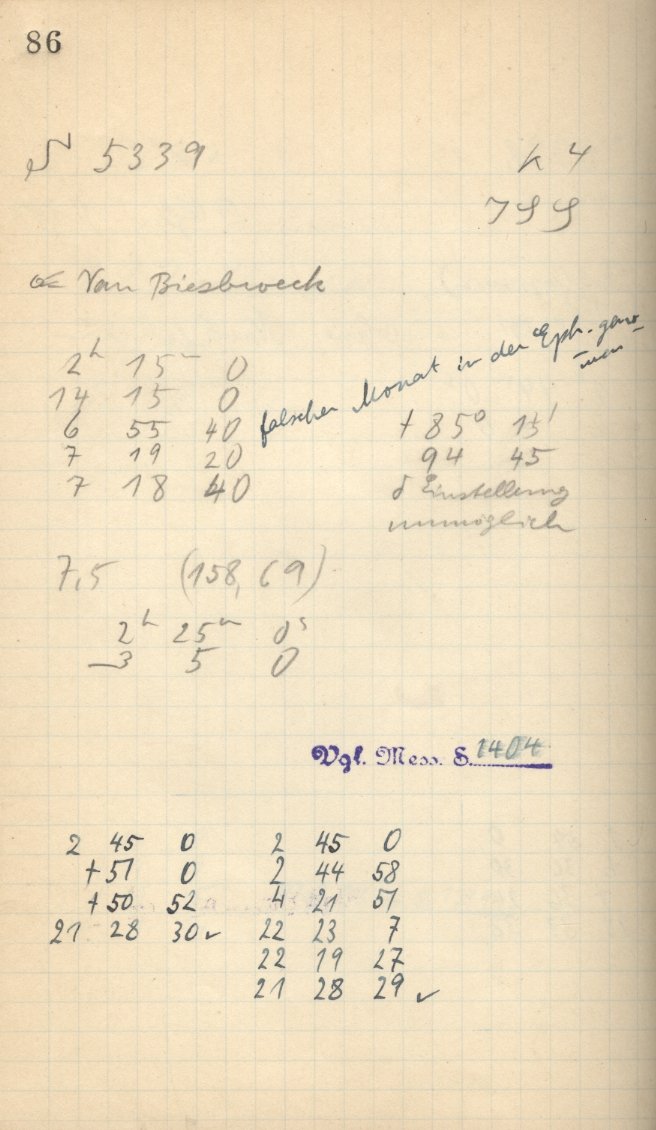 86
N 5339
K 4
799
Van Biesbroeck
2ʰ 15ᵐ 0
14 15 0
6 55 40
7 19 20
7 18 40
falscher Monat in der Eph. genommen
+85° 15'
94 45
δ Einstellung
unmöglich
7,5 (158,69)
2ʰ 25ᵐ 0ˢ
–3 5 0
Vgl. Mess. S. 1404
2 45 0
+51 0
+50 52
21 28 30 ✓
2 45 0
2 44 58
4 21 51
22 23 7
22 19 27
21 28 29 ✓